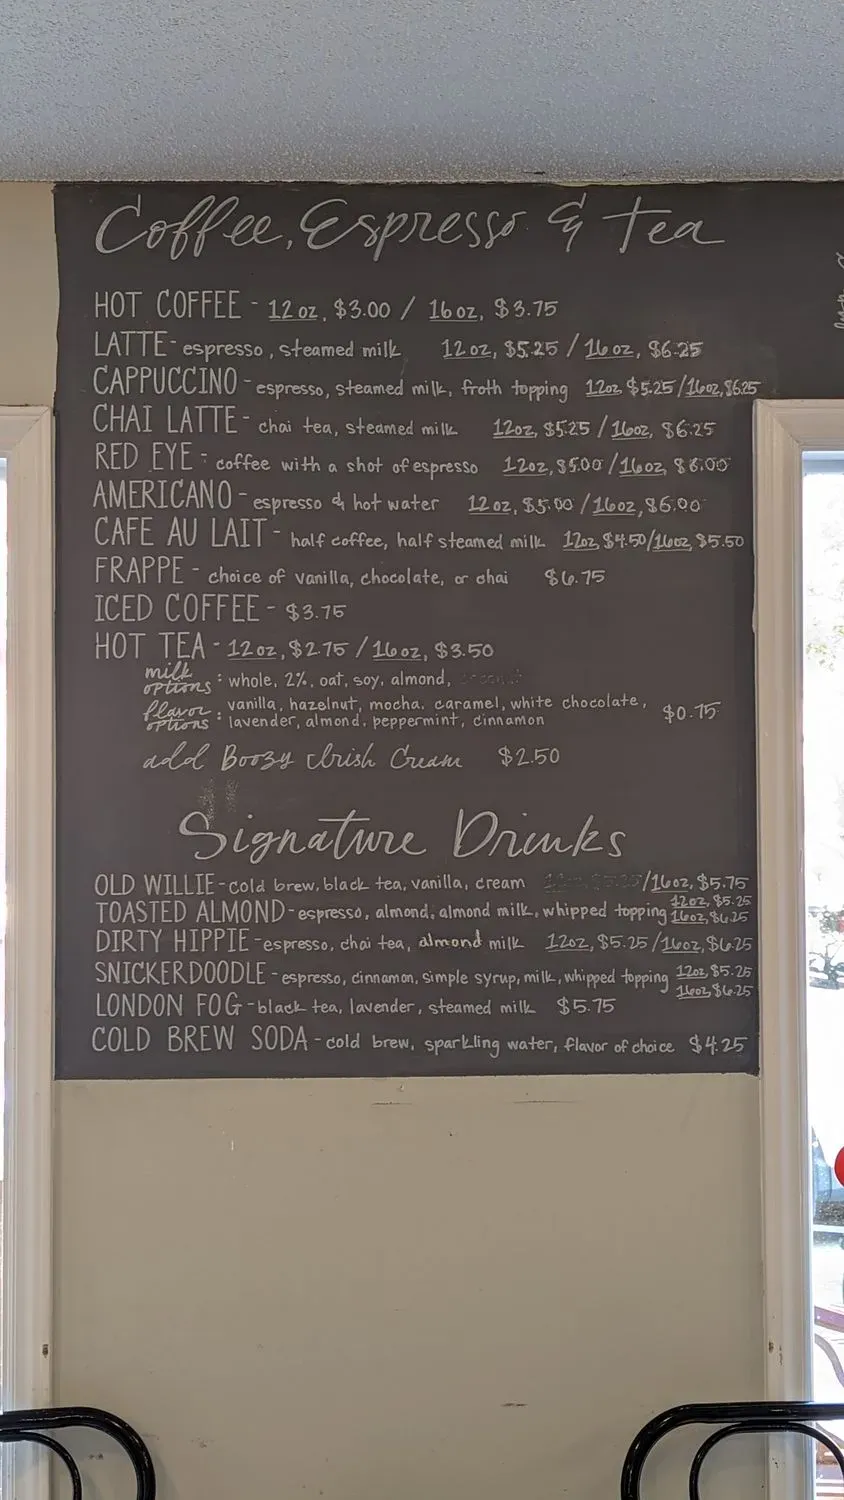 Coffee, Espresso & tea
HOT COFFEE - 12 oz, $3.00 / 16 oz, $3.75
LATTE - espresso, steamed milk 12 oz, $5.25 / 16 oz, $6.25
CAPPUCCINO - espresso, steamed milk, froth topping 12oz $5.25/16oz, $6.25
CHAI LATTE - chai tea, steamed milk 12oz, $5.25 / 16oz, $6.25
RED EYE - coffee with a shot of espresso 12oz, $5.00 / 16oz, $6.00
AMERICANO - espresso & hot water 12 oz, $5.00 / 16oz, $6.00
CAFE AU LAIT - half coffee, half steamed milk 12oz, $4.50/16oz, $5.50
FRAPPE - choice of vanilla, chocolate, or chai $6.75
ICED COFFEE - $3.75
HOT TEA - 12 oz, $2.75 / 16 oz, $3.50
milk options: whole, 2%, oat, soy, almond,
flavor options: vanilla, hazelnut, mocha, caramel, white chocolate, $0.75
lavender, almond, peppermint, cinnamon
add Boozy Irish Cream $2.50
Signature Drinks
OLD WILLIE - cold brew, black tea, vanilla, cream /16oz, $5.75
TOASTED ALMOND - espresso, almond, almond milk, whipped topping 12oz, $5.25
16oz, $6.25
DIRTY HIPPIE - espresso, chai tea, almond milk 12oz, $5.25 / 16oz, $6.25
SNICKERDOODLE - espresso, cinnamon, simple syrup, milk, whipped topping 12oz, $5.25
16oz, $6.25
LONDON FOG - black tea, lavender, steamed milk $5.75
COLD BREW SODA - cold brew, sparkling water, flavor of choice $4.25